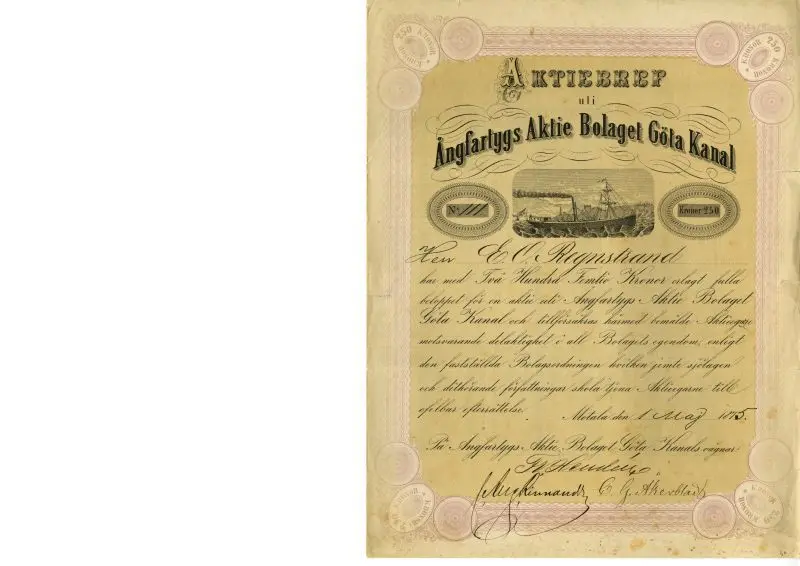 250 KRONOR
KRONOR 250
AKTIEBREF
uti
Ångfartygs Aktie Bolaget Göta Kanal
No 111
Kronor 250
Herr E. O. Regnstrand
har med Två Hundra Femtio Kronor erlagt fulla
beloppet för en aktie uti Ångfartygs Aktie Bolaget
Göta Kanal och tillförsäkras härmed bemälde Aktieegare
motsvarande delaktighet i all Bolagets egendom, enligt
den fastställda Bolagsordningen hvilken jemte sjölagen
och dithörande författningar skola tjena Aktieegarne till
ofelbar efterrättelse.
Motala den 1 Maj 1875.
På Ångfartygs Aktie Bolaget Göta Kanals vägnar
C. G. Åkerblad
250 KRONOR
KRONOR 250